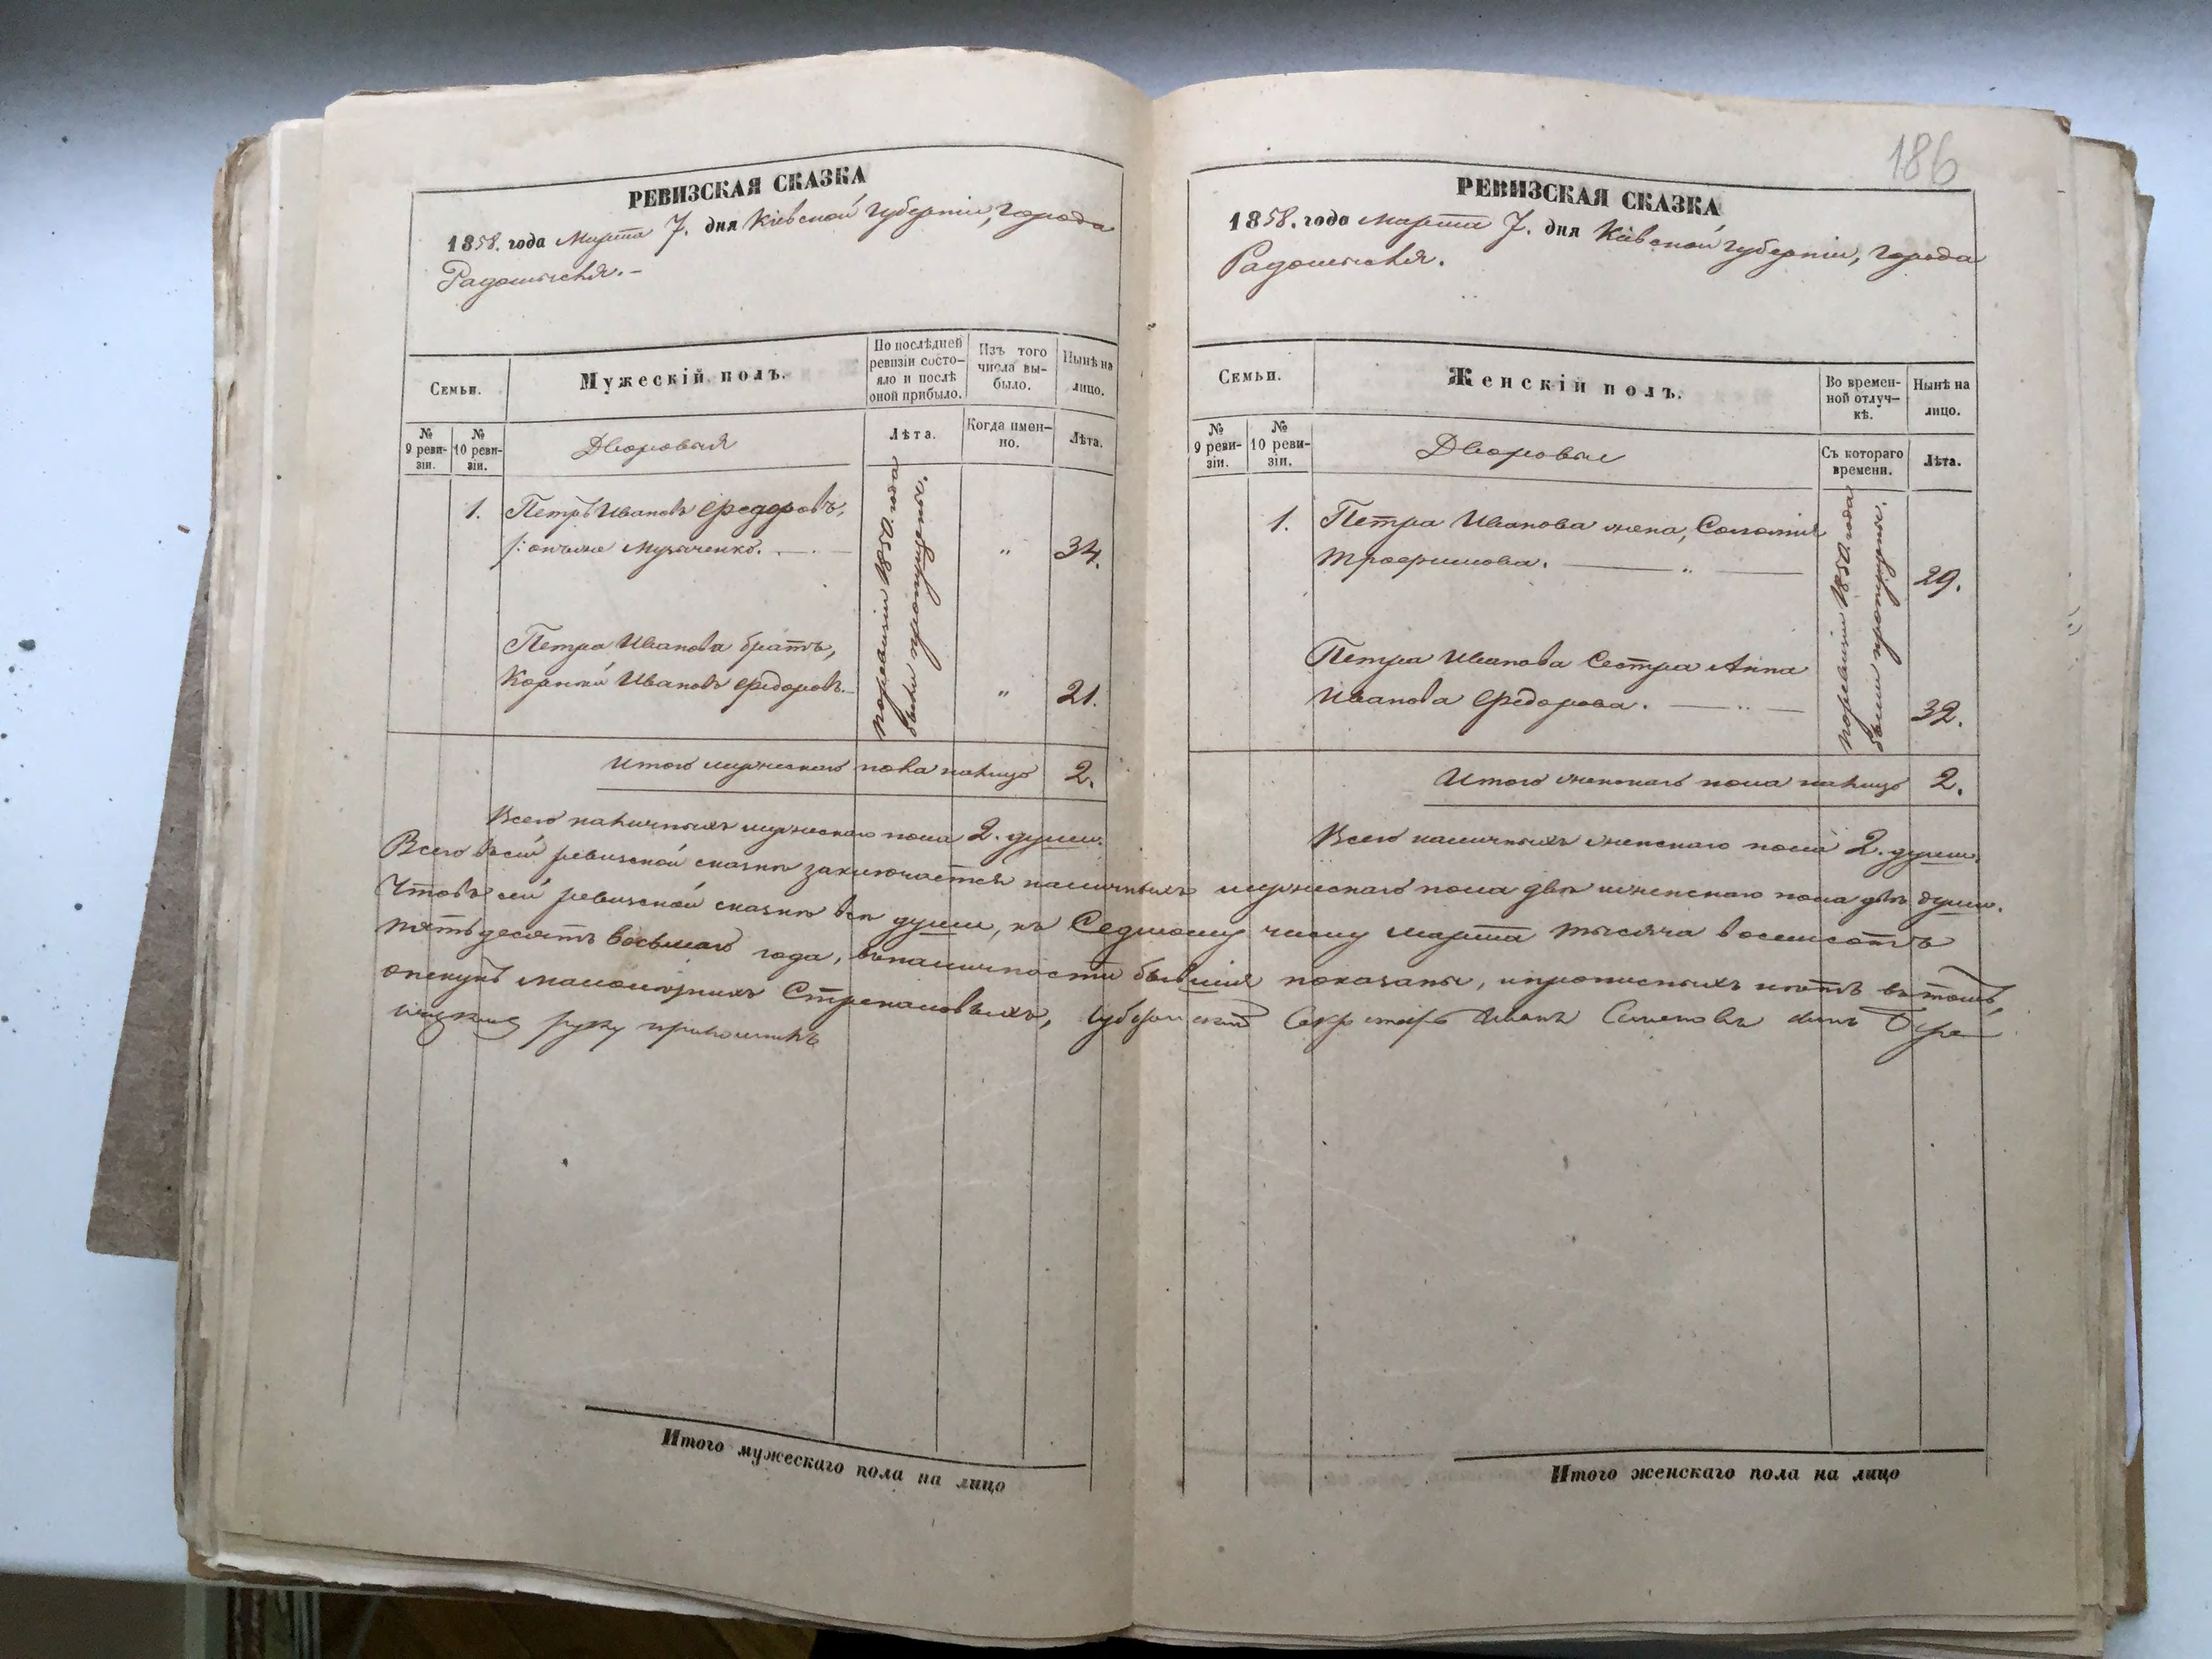 186
РЕВИЗСКАЯ СКАЗКА
1858. года Марта 7. дня Кіевской губерніи, города
Радомысля.-
Семьи.
Мужескій полъ.
По послѣдней ревизіи состояло и послѣ оной прибыло.
Изъ того числа выбыло.
Нынѣ на лицо.
№ 9 ревизіи.
№ 10 ревизіи.
Дворовыя
Лѣта.
Когда именно.
Лѣта.
1. Петръ Ивановъ Федоровъ, 34.
онъ же
Петра Иванова братъ,
Корнѣй Ивановъ Федоровъ. 21.
по ревизіи 1850 года
были пропущены.
Итого мужескаго пола налицо 2.
Всего наличныхъ мужескаго пола 2. души.
РЕВИЗСКАЯ СКАЗКА
1858. года Марта 7. дня Кіевской губерніи, города
Радомысля.
Семьи.
Женскій полъ.
Во временной отлучкѣ.
Нынѣ на лицо.
№ 9 ревизіи.
№ 10 ревизіи.
Дворовые
Съ котораго времени.
Лѣта.
1. Петра Иванова жена, Соломія
Трофимова. 29.
Петра Иванова Сестра Анна
Иванова Федорова. 32.
по ревизіи 1850 года
были пропущены.
Итого женскаго пола налицо 2.
Всего наличныхъ женскаго пола 2. души.
Всего въ сей ревизской сказкѣ заключается наличныхъ мужескаго пола двѣ и женскаго пола двѣ души.
Что въ сей ревизской сказкѣ всѣ души, къ Седьмому числу Марта тысяча восемсотъ
пятьдесятъ восьмаго года, въ наличности бывшія показаны, и прописныхъ нѣтъ въ томъ,
опекунъ малолѣтнихъ Губернскій Секретарь Иванъ Семеновъ сынъ
руку приложилъ
Итого мужескаго пола на лицо
Итого женскаго пола на лицо